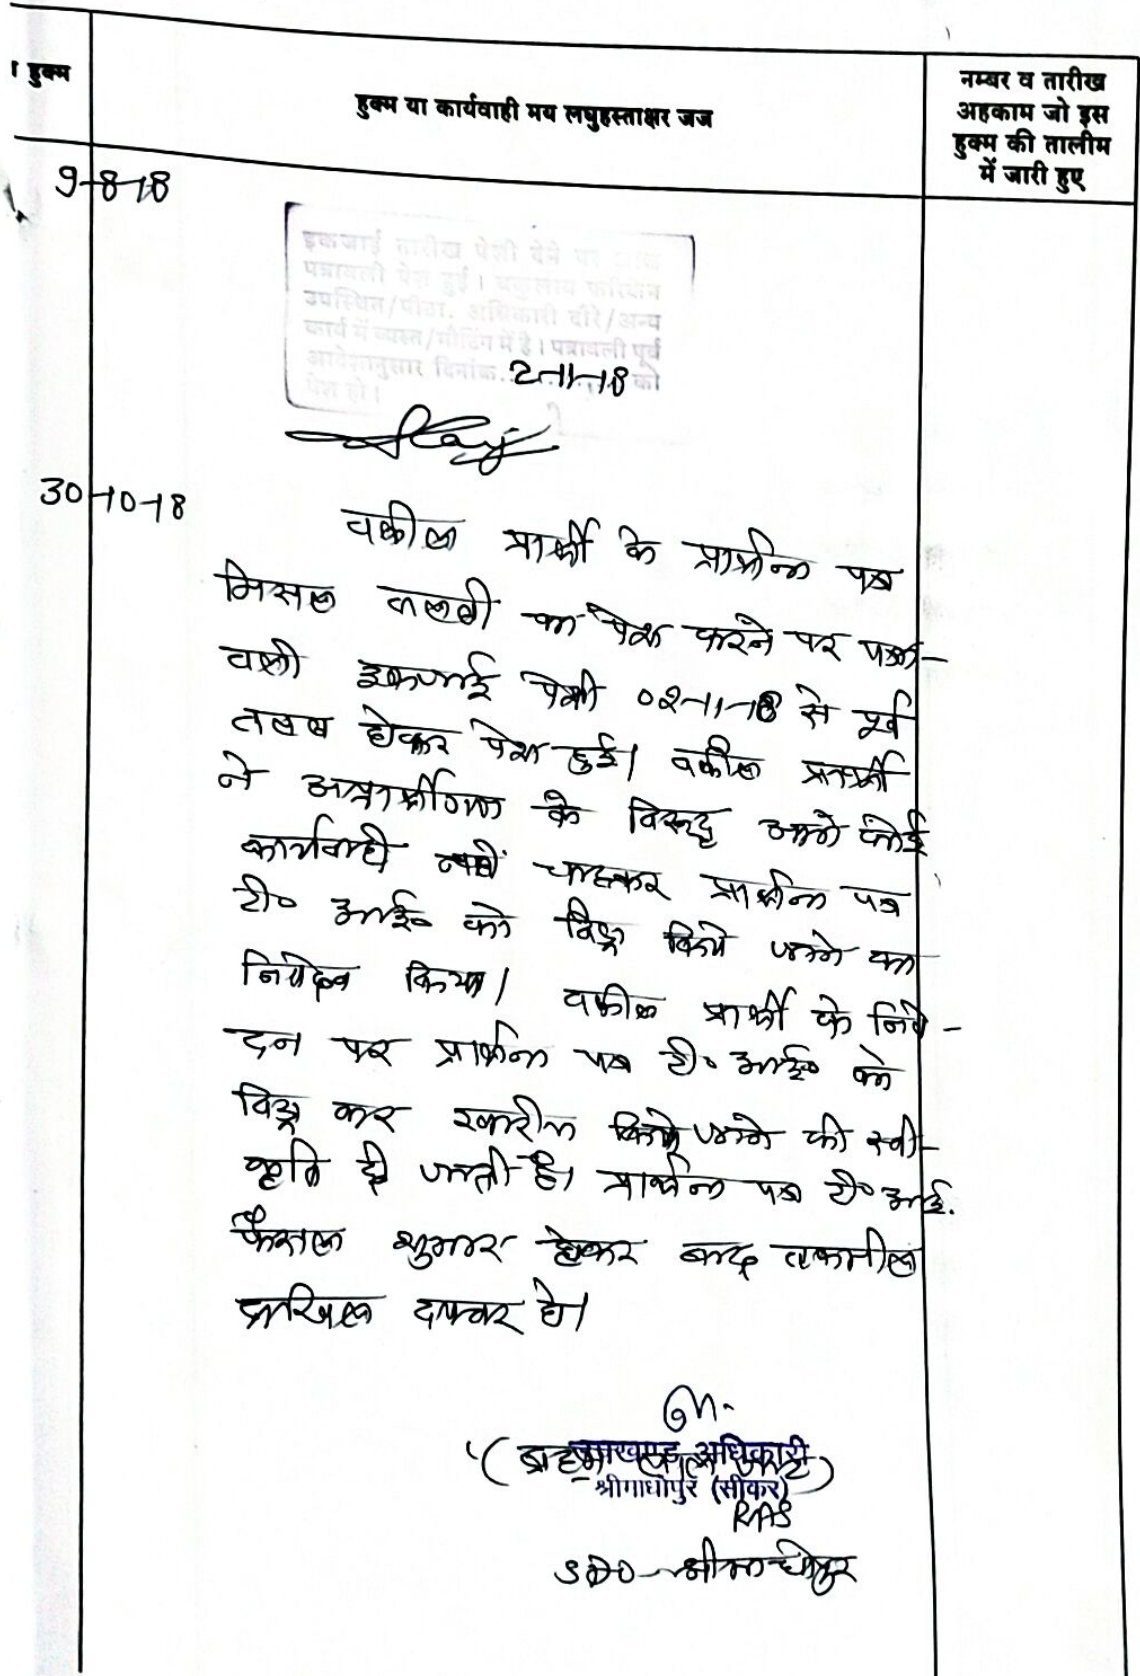 । हुक्म
हुक्म या कार्यवाही मय लघुहस्ताक्षर जज
नम्बर व तारीख
अहकाम जो इस
हुक्म की तालीम
में जारी हुए
9-8-18
इकजाई तारीख पेशी देने पर
पत्रावली पेश हुई। वकुलाय फरिकेन
उपस्थित/पीठा. अधिकारी दौरे/अन्य
कार्य में व्यस्त/मीटिंग में है। पत्रावली पूर्व
आदेशानुसार दिनांक 2-11-18 को
पेश हो।
30-10-18
वकील प्रार्थी के प्रार्थना पत्र
मिसल तलबी का पेश करने पर पत्रा-
वली इकजाई पेशी 02-11-18 से पूर्व
तलब होकर पेश हुई। वकील प्रार्थी
ने अप्रार्थीगण के विरूद्ध आगे कोई
कार्यवाही नहीं चाहकर प्रार्थना पत्र
टी० आई० को विड्रा किये जाने का
निवेदन किया। वकील प्रार्थी के निवे-
दन पर प्रार्थना पत्र टी० आई० को
विड्रा कर खारीज किये जाने की स्वी-
कृति दी जाती है। प्रार्थना पत्र टी० आई.
फैसल शुमार होकर बाद तकमील
दाखिल दफ्तर हो।
उपखण्ड अधिकारी
श्रीमाधोपुर (सीकर)
RAS
SDO श्रीमाधोपुर